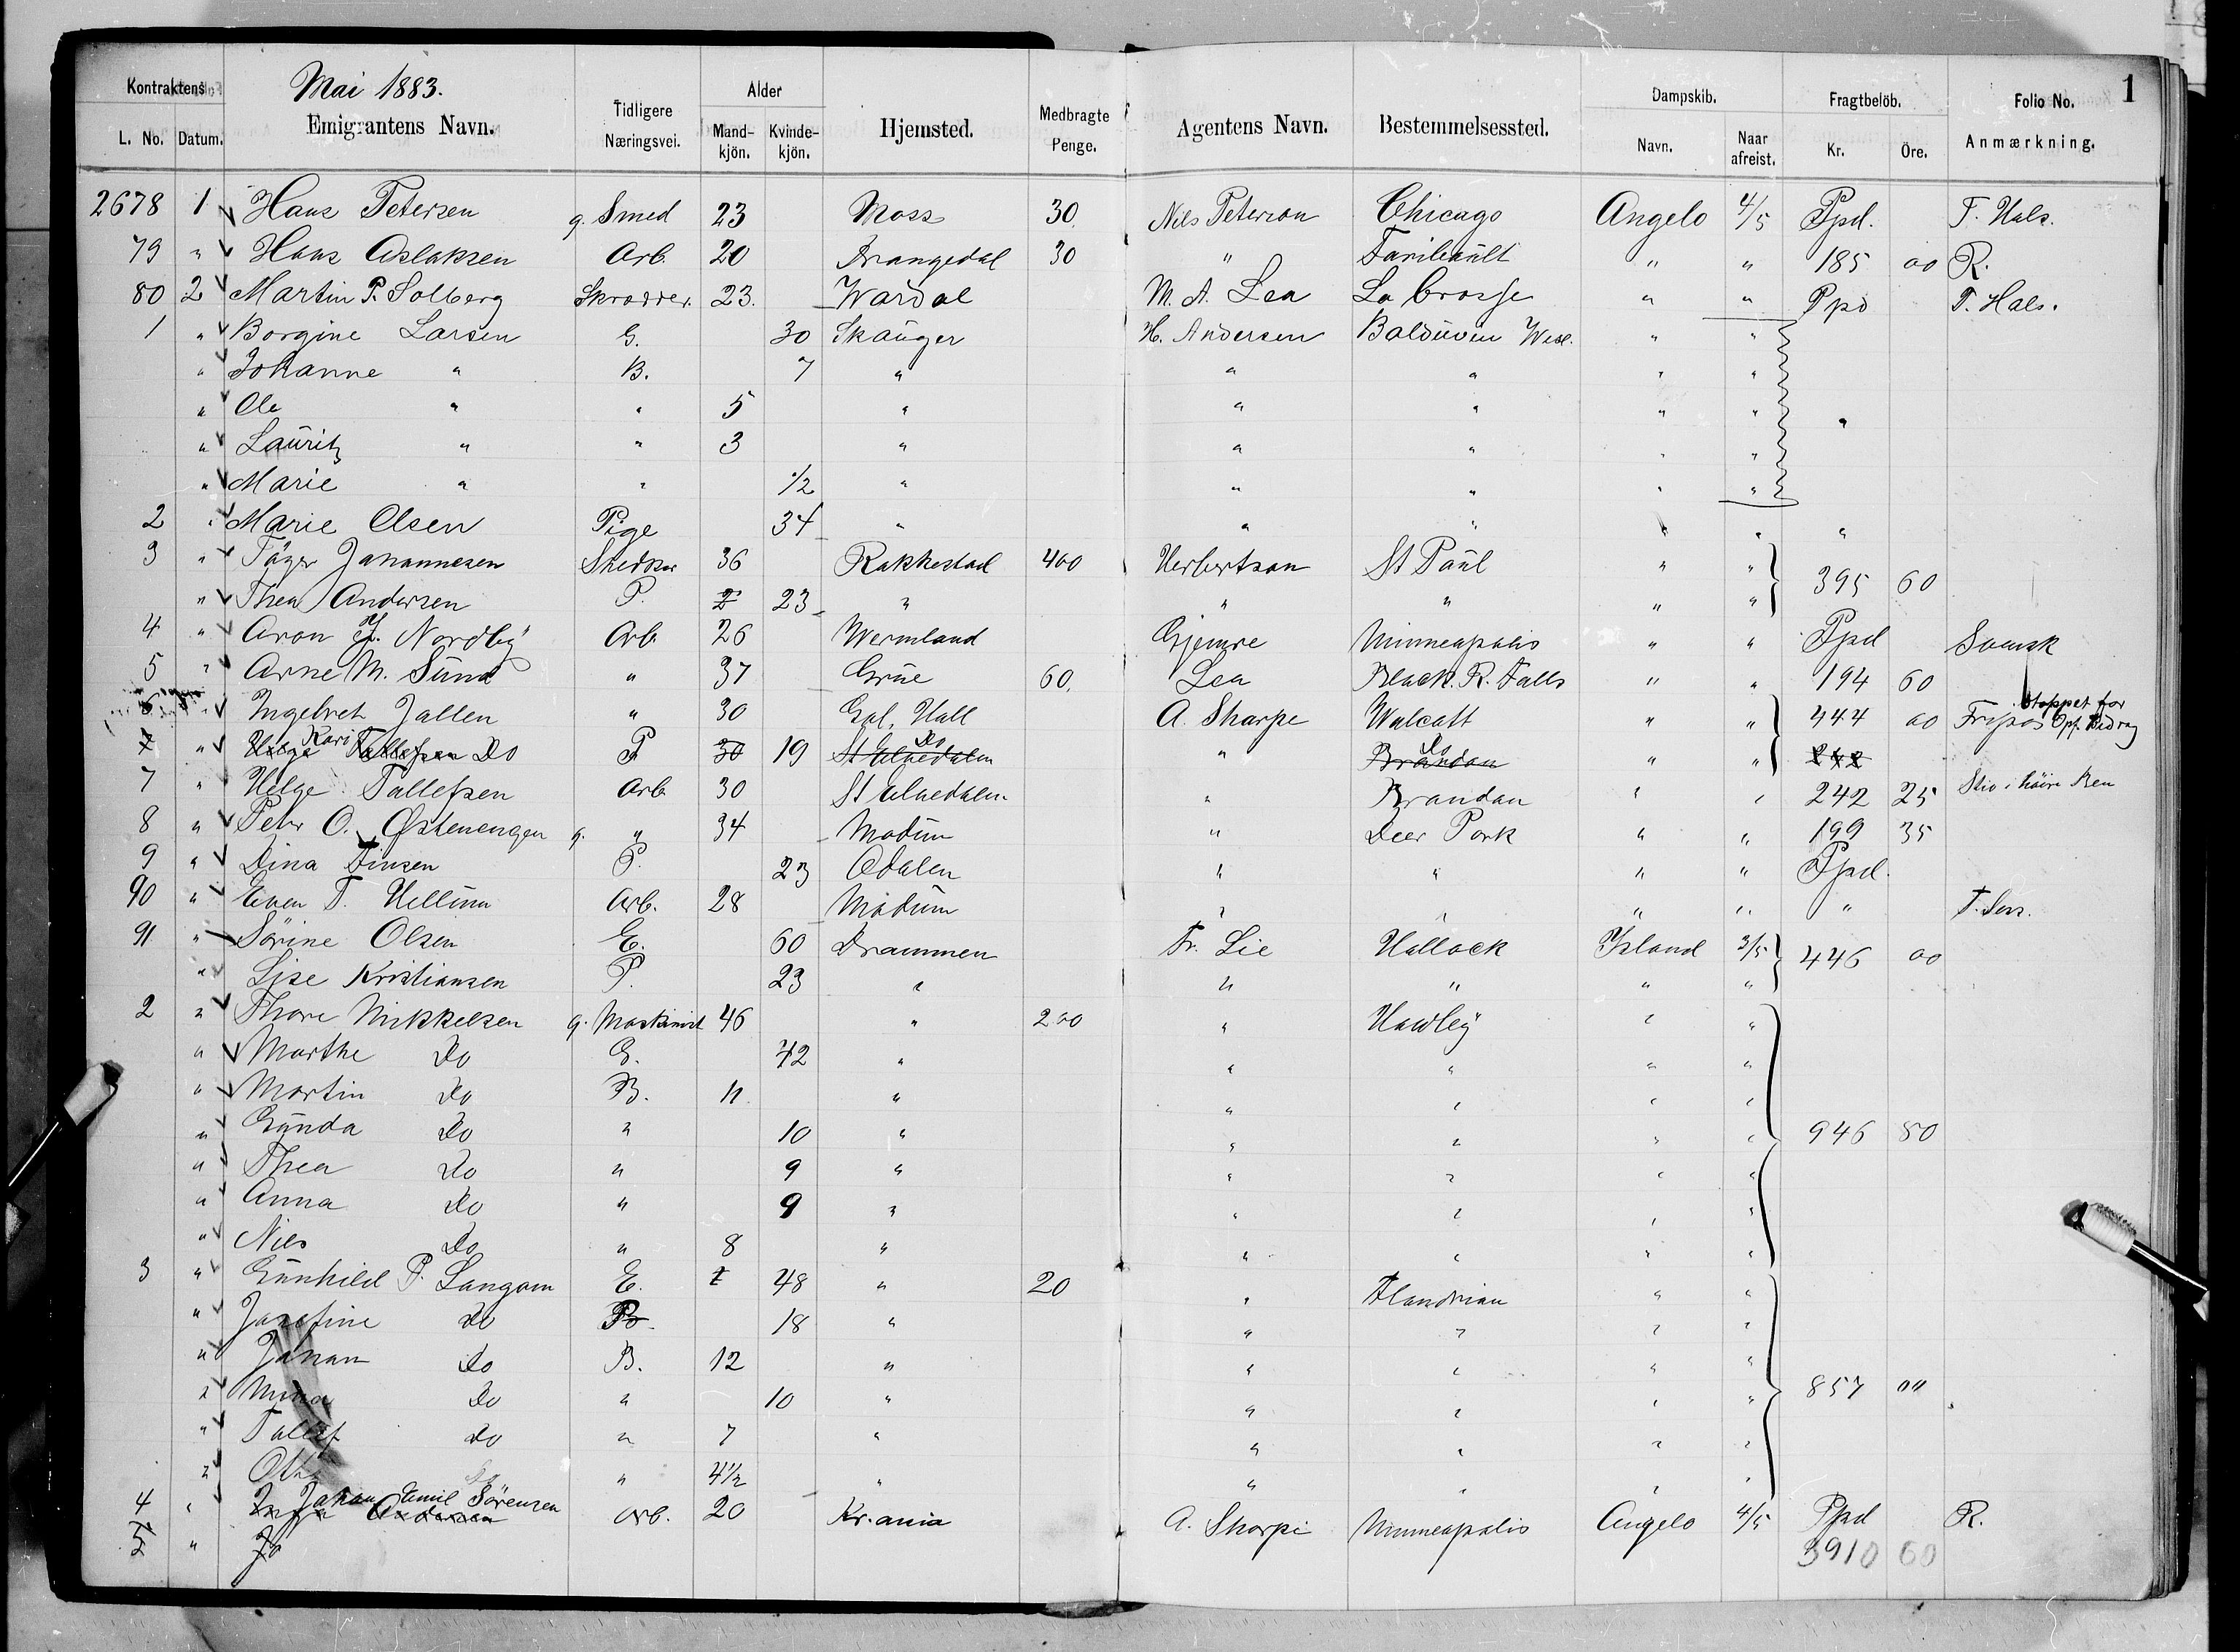 1
Kontraktens Mai 1883. Tidligere Næringsvei. Alder Hjemsted. Medbragte Penge. Agentens Navn. Bestemmelsessted. Dampskib. Fragtbelöb. Folio No.
L. No. Datum. Emigrantens Navn. Mand-kjön. Kvinde-kjön. Navn. Naar afreist. Kr. Öre. Anmærkning.
2678 1 Hans Petersen g. Smed 23 Moss 30 Nils Peterson Chicago Angelo 4/5 Ppd. T. Hals.
79 " Hans Aslaksen Arb. 20 Drangedal 30 " Faribault " " 185 00 R.
80 2 Martin P. Solberg Skrædder. 23. Wardal M. A. Lea La Crosse " " Ppd T. Hals.
1 " Borgine Larsen G. 30 Skauger H. Andersen Balduven Wisc. " "
" Johanne " B. 7 " " " " "
" Ole " " 5 " " " " " "
" Lauritz " " 3 " " " " "
" Marie " " 1/2 " " " " "
2 " Marie Olsen Pige 34 " " " " " "
3 " Johannesen 36 Rakkestad 400 Herbertson St Paul " " 395 60
" Thea Andersen P. 23 " " " " "
4 " Aron J. Nordby Arb. 26 Wermland Gjemre Minneapolis " " Ppd Svensk
5 " Arne M. Sund " 37 Grue 60. Lea Black. R. Falls " " 194 60
6 " Ingebret Jallen " 30 Gol, Hall A. Sharpe Walcott " " 444 00 Stoppet for
" Kari Do P 30 19 St Elvedalen Do " Brandon Do " " 242
7 " Helge Tallefsen Arb. 30 St Elvedalen " Brandon " " 242 25 Stiv i høire Ben
8 " Peter O. Østenengen g. " 34 Modum " Deer Park " " 199 35
9 " Dina Finsen P. 23 Odalen " " " " Ppd.
90 " Even T. Hellum Arb. 28 Modum " " " " "
91 " Sörine Olsen E. 60 Drammen Fr. Lie Hallock Island 3/5 446 00
" Lise Kristiansen P. 23 " " " " "
2 " Thore Mikkelsen g. Maskinist 46 " 200 " Hawley " "
" Marthe Do G. 42 " " " " "
" Martin Do B. 11 " " " " "
" Gunda Do " 10 " " " " " 946 80
" Thea Do " 9 " " " " "
" Anna Do " 9 " " " " "
" Nils Do " 8 " " " " "
3 " Gunhild P. Langom E. 48 " 20 " Flandrian " "
" Josefine Do 18 " " " " "
" Johan Do B. 12 " " " " "
" Mina Do " 10 " " " " " 857 00
" Tallef Do " 7 " " " " "
" Otto " 4 1/2 " " " " "
4 " Johan Emil Sörensen Arb. 20 Kr.ania A. Sharpe Minneapolis Angelo 4/5 Ppd R.
5 " Jo 3910 60